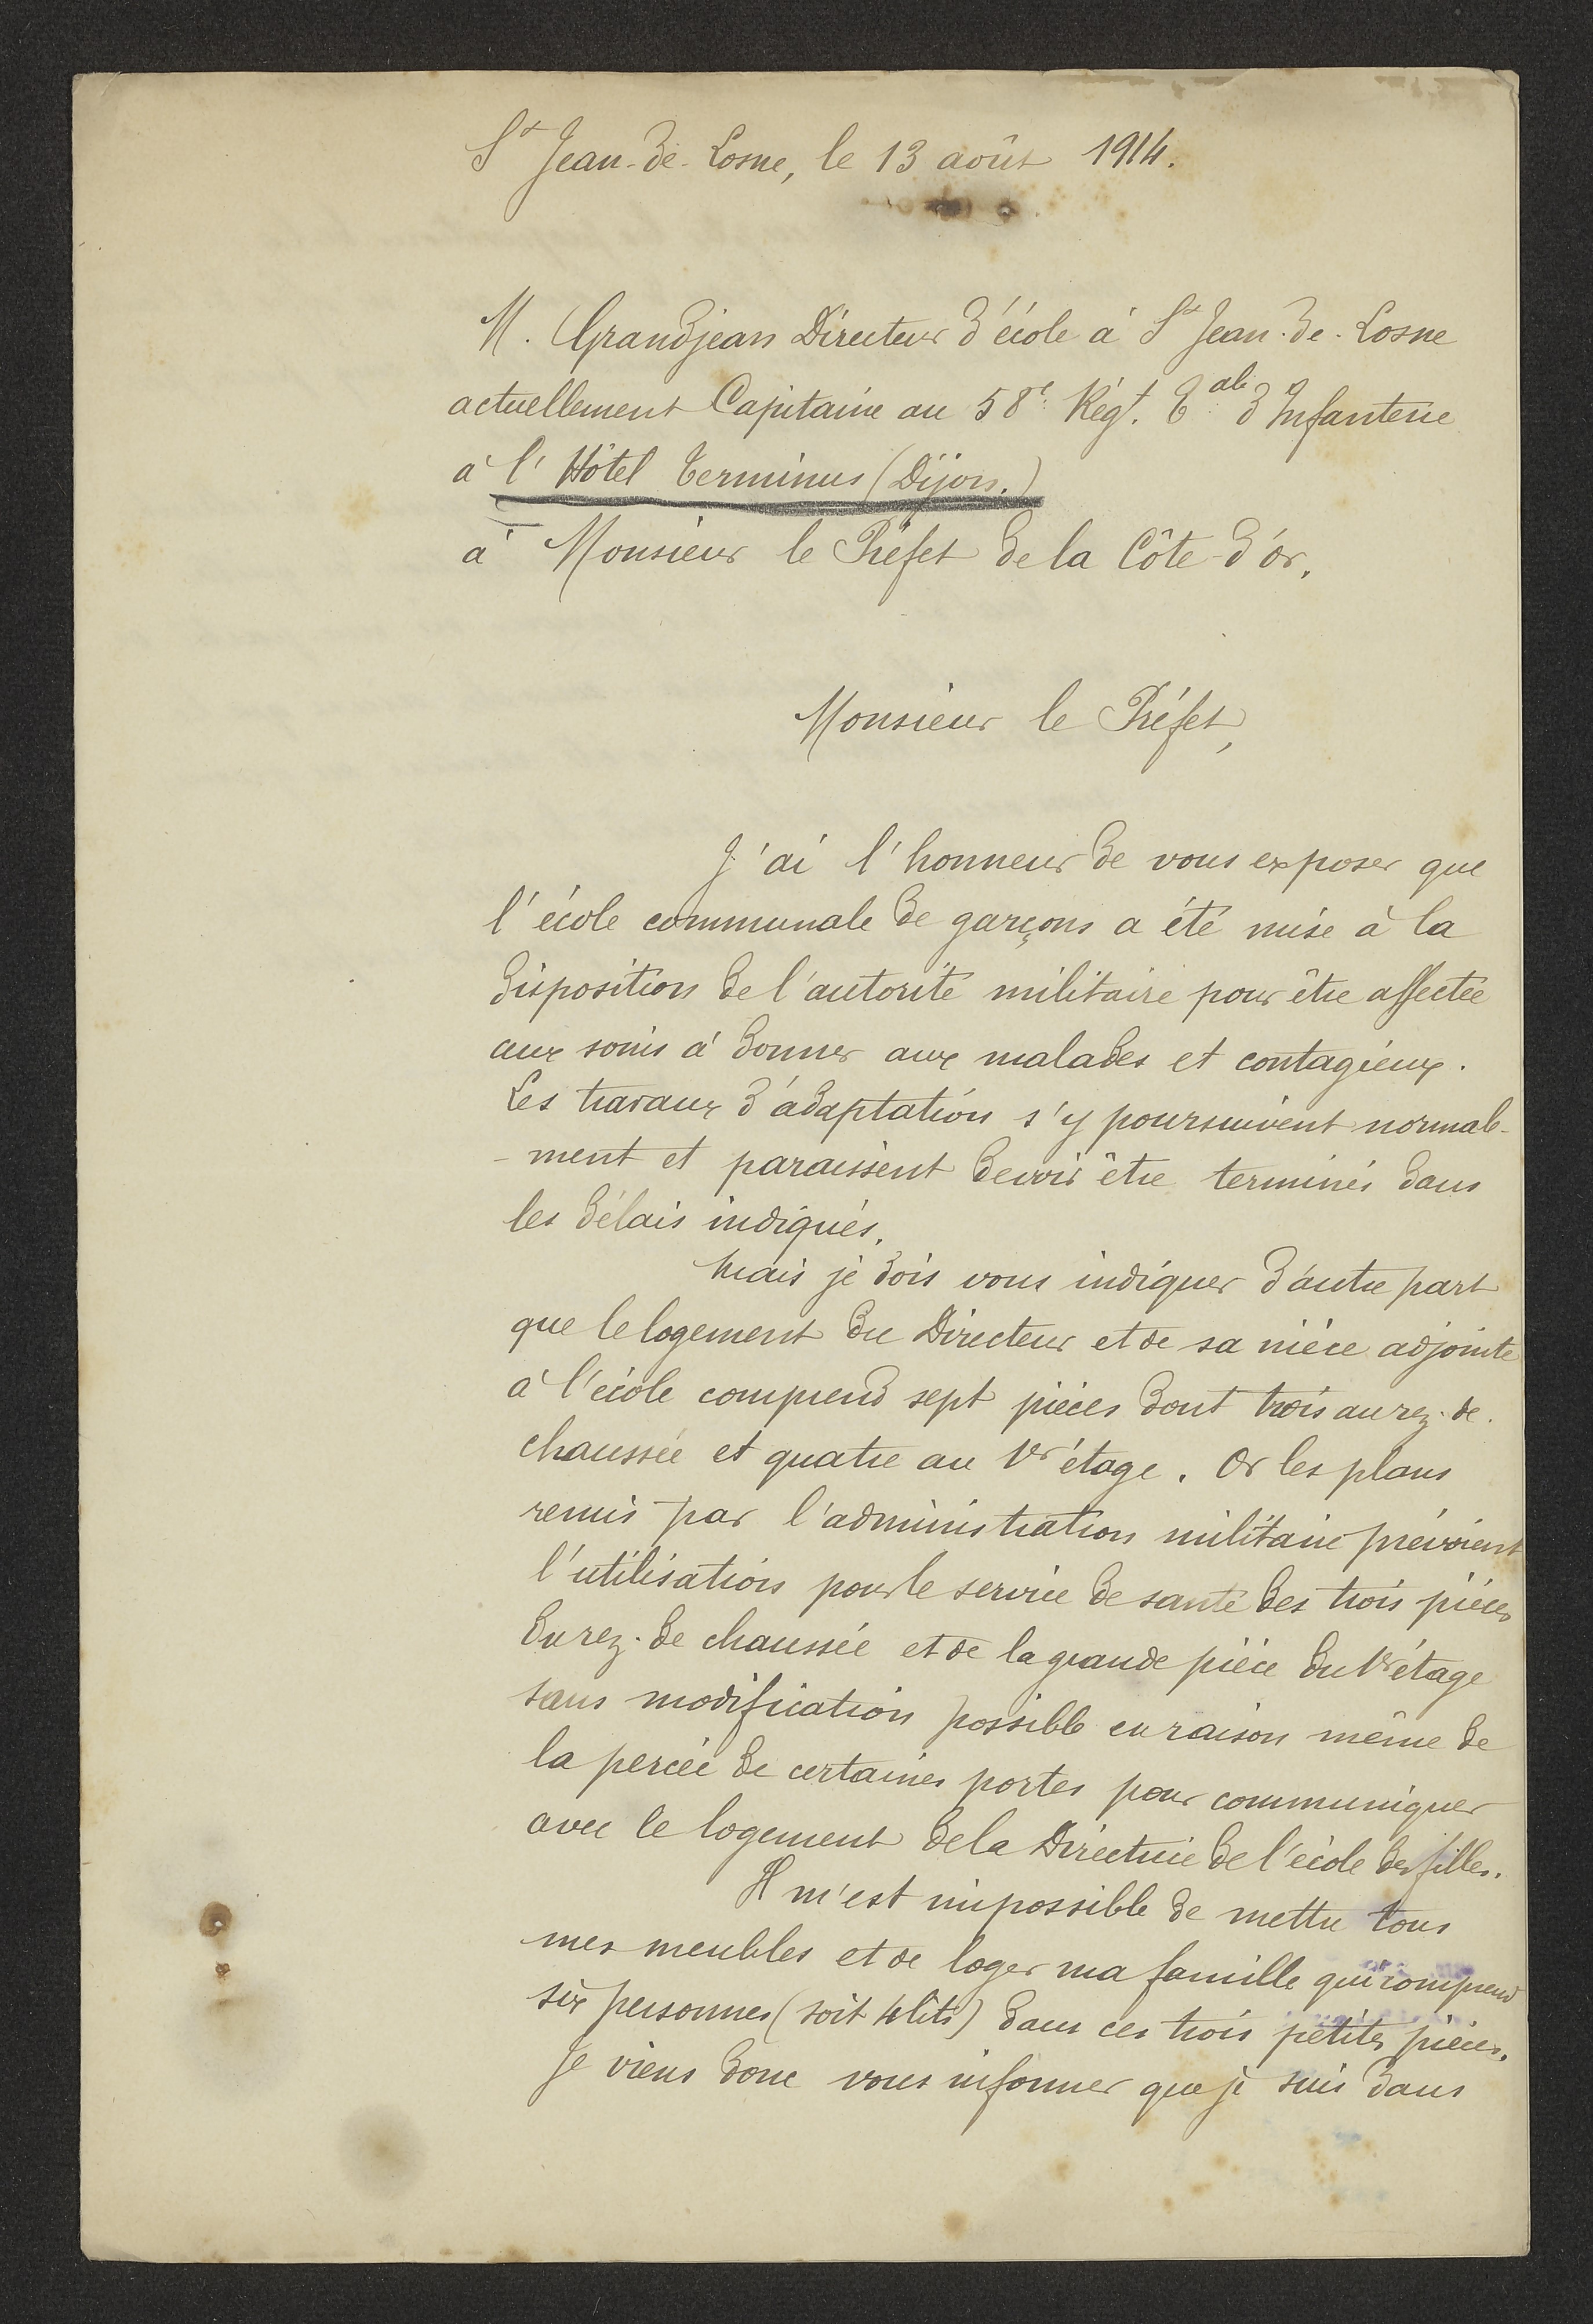 St Jean-de-Losne, le 13 août 1914.
M. Grandjean Directeur d'école à St Jean-de-Losne
actuellement Capitaine au 58e Régt. Tal d'Infanterie
à l'Hôtel Terminus (Dijon.)
à Monsieur le Préfet de la Côte-d'or.
Monsieur le Préfet,
J'ai l'honneur de vous exposer que
l'école communale de garçons a été mise à la
disposition de l'autorité militaire pour être affectée
aux soins à donner aux malades et contagieux.
Les travaux d'adaptation s'y poursuivent normale-
-ment et paraissent devoir être terminés dans
les délais indiqués.
Mais je dois vous indiquer d'autre part
que le logement du Directeur et de sa nièce adjointe
à l'école comprend sept pièces dont trois au rez-de-
chaussée et quatre au 1er étage. Or les plans
remis par l'administration militaire prévoient
l'utilisation pour le service de santé des trois pièces
du rez-de chaussée et de la grande pièce du 1er étage
sans modification possible en raison même de
la percée de certaines portes pour communiquer
avec le logement de la Directrice de l'école des filles.
Il m'est impossible de mettre tous
mes meubles et de loger ma famille qui comprend
six personnes (soit 4 lits) dans ces trois petites pièces.
Je viens donc vous informer que je suis dans